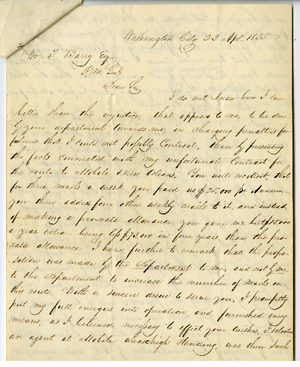 Washington City 23 Apl. 1835
Wm. T. Barry Esqr
P. M. Genl
Dear Sir
I do not know how I can
better shew the injustice that appears to me to be done
by your department towards me, in charging penalties for
failures that I could not possibly Controul, than by presenting
the facts connected with my unfortunate Contract for
the route to Mobile & New Orleans. You will recollect, that
for three mails a week you paid us $ per Annum
you then added four other weekly mails to it, and instead
of making a prorata allowance, you gave me but
a year extra being in four years, than the pro
rata allowance. I have further to remark that the propo
sition was made by the Department to me, and not by me
to the department, to increase the number of mails on
this route. With a sincere desire to serve you, I promptly
put my full energies into operation, and furnished every
means, as I believed necessary to effect your wishes, I
an agent at Mobile of high standing, was then such